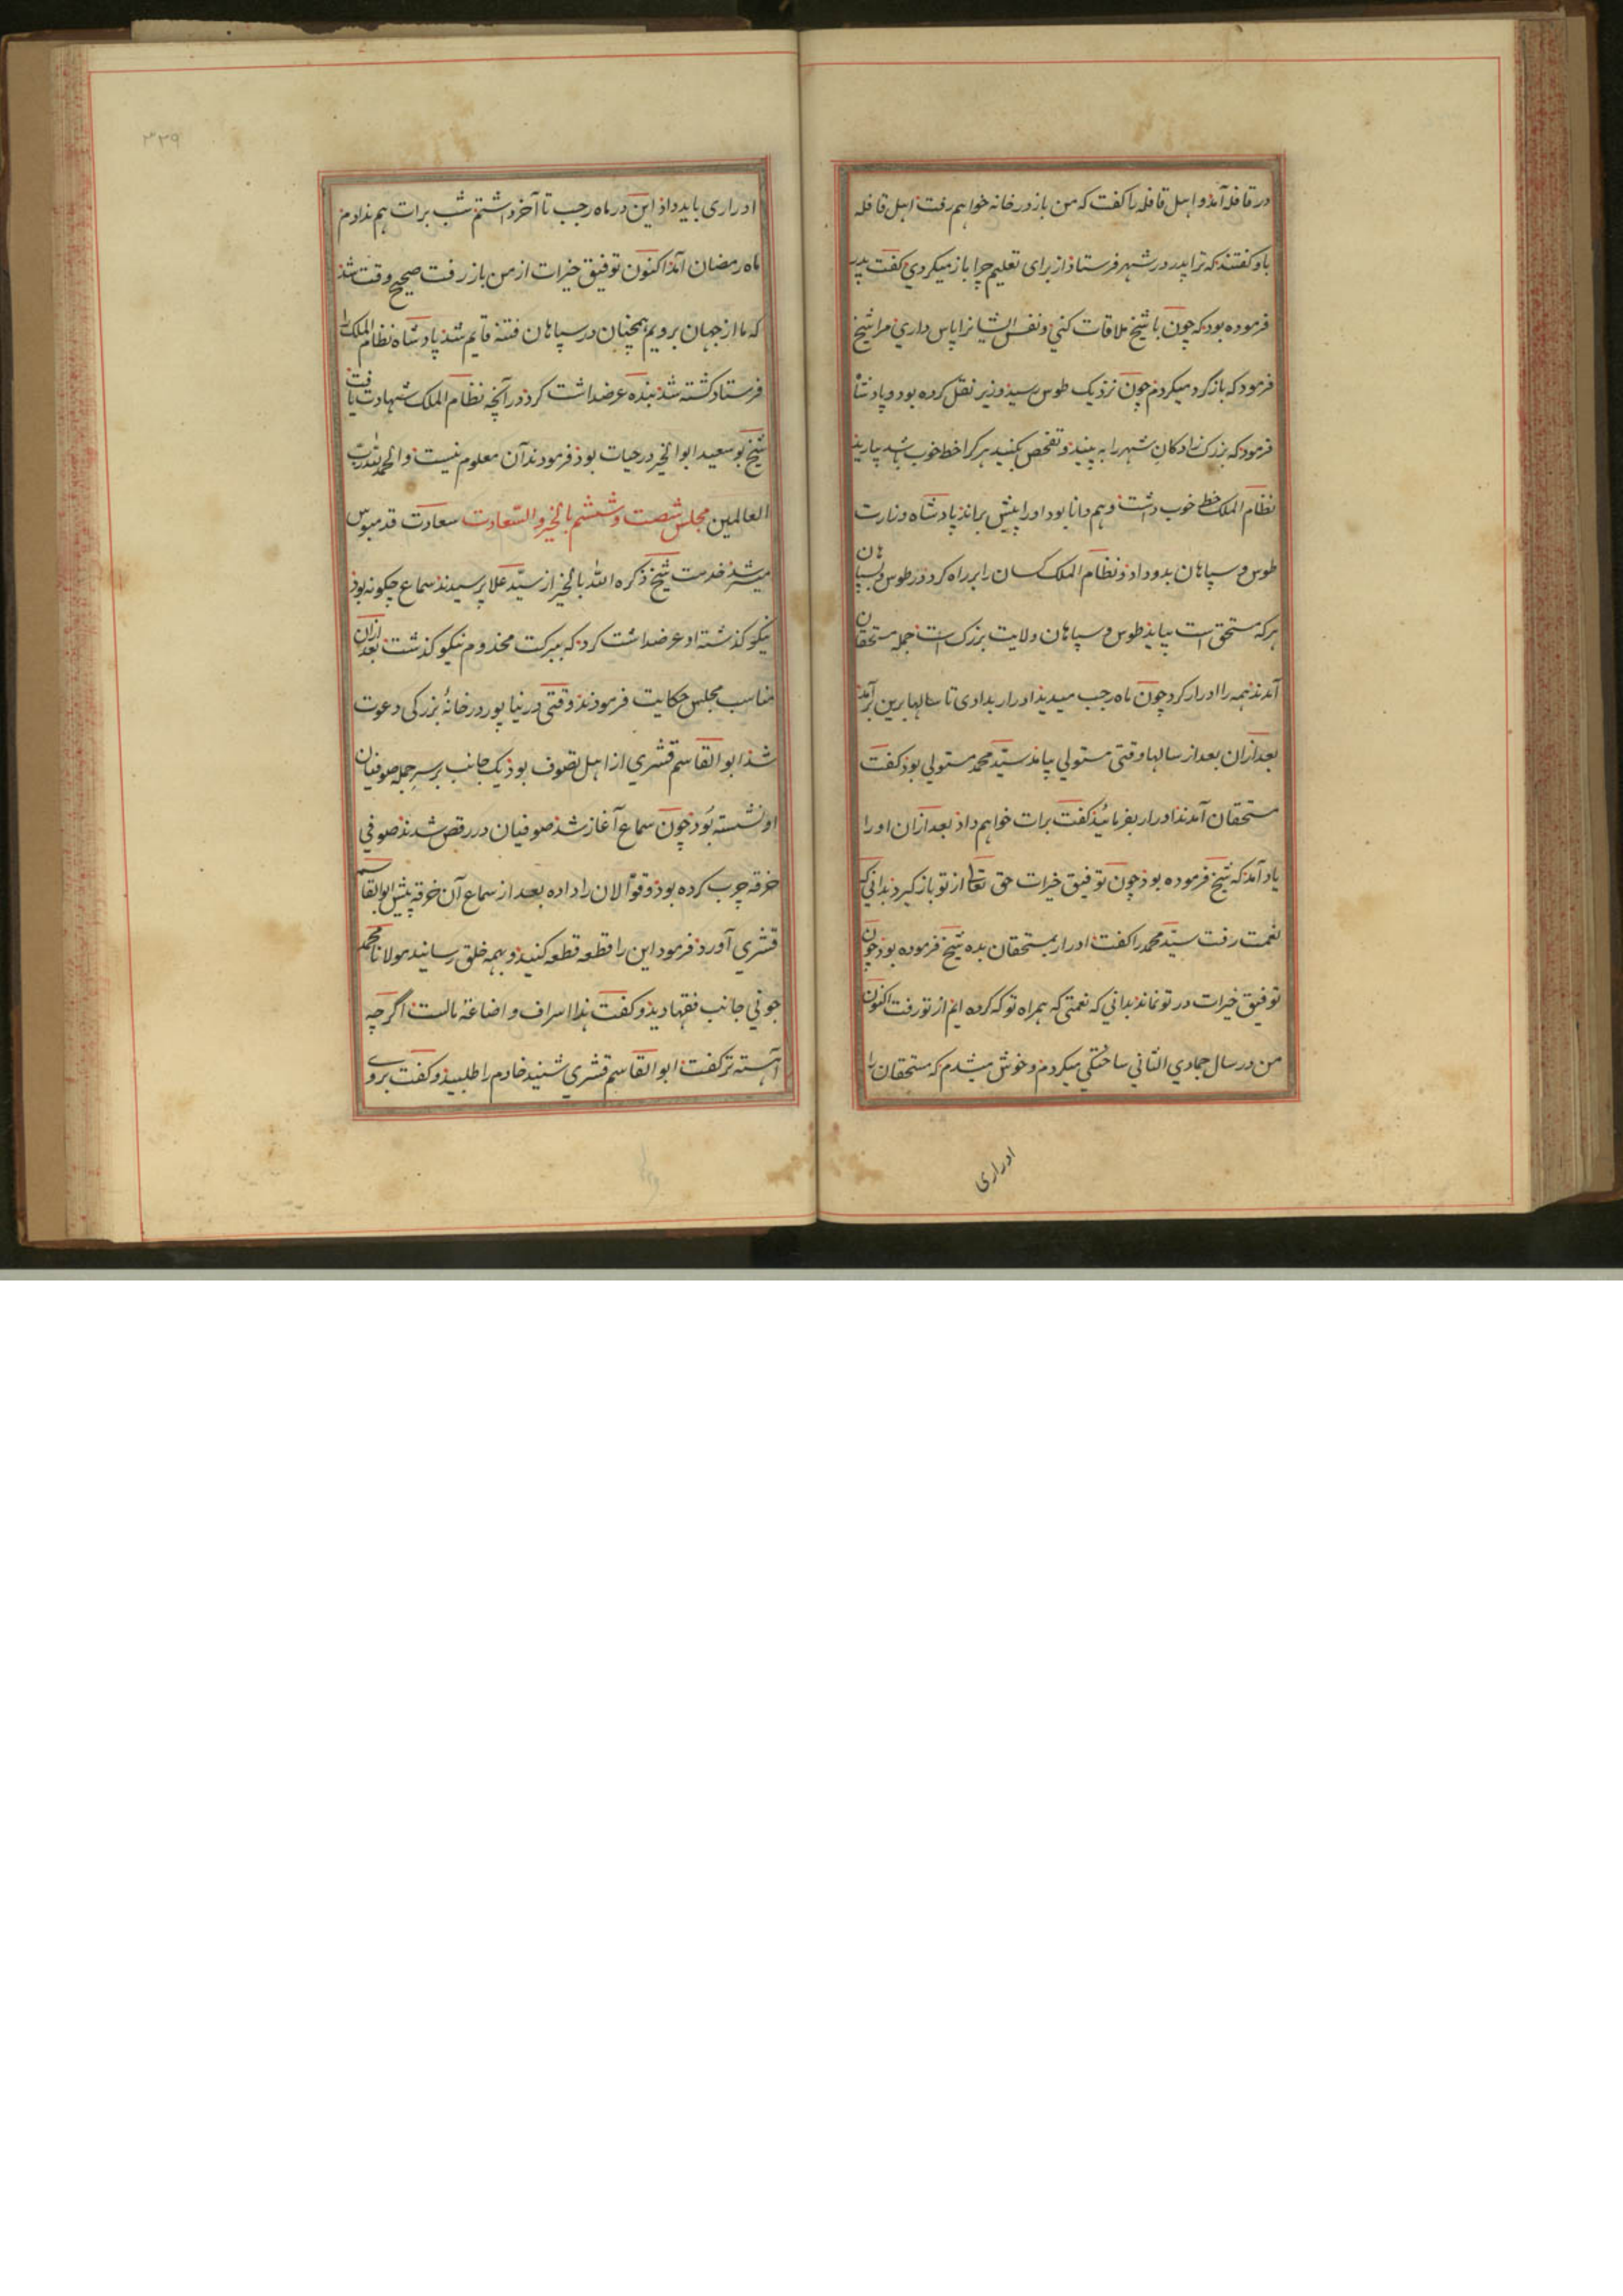 در قافله آمد و اهل قافله را کفت که من باز در خانه خواهم رفت اهل قافله
باو کفتند که ترا پدر در شهر فرستاد از برای تعلیم چرا باز میکردی کفت پدر
فرموده بود که چون با شیخ ملاقات کنی و نفس ایشانرا پاس داری مرا شیخ
فرمود که بازکرد میکردم چون نزدیک طوس رسید وزیر نقل کرده بود و پادشاه
فرمود که بزرک زادکان شهر را به بینید و تفحص بکنید هر کرا خط خوب باشد بیارید
نظام الملک خط خوب داشت و هم دانا بود او را پیش براند پادشاه وزارت
طوس و سپاهان بدو داد و نظام الملک کسان را بر راه کرد در طوس و سپاهان
هر که مستحق است بیاید طوس و سپاهان ولایت بزرک است جمله مستحقان
آمدند همه را ادرار کرد چون ماه رجب میدید ادرار بدادی تا سالها برین برآمد
بعد ازان بعد از سالها وقتی مستولی بیامد سید محمد مستولی بود کفت
مستحقان آمدند ادرار بفرمائید کفت برات خواهم داد بعد ازان او را
یاد آمد که شیخ فرموده بود چون توفیق خیرات حق تعالی از تو باز کیرد بدانی که
نعمت رفت سید محمد را کفت ادرار بمستحقان بده شیخ فرموده بود چون
توفیق خیرات در تو نماند بدانی که نعمتی که همراه تو که کرده ایم از تو رفت اکنون
من در سال جمادی الثانی ساختکی میکردم و خوش میشدم که مستحقان را
ادراری
۳۳۹
ادراری باید داد این در ماه رجب تا آخر داشتم شب برات هم ندادم
ماه رمضان آمد اکنون توفیق خیرات از من باز رفت صحیح وقت شد
که ما از جهان برویم همچنان در سپاهان فتنه قایم شد پادشاه نظام الملک را
فرستاد کشته شد بنده عرضداشت کرد در آنچه نظام الملک شهادت یافت
شیخ بو سعید ابوالخیر در حیات بود فرمودند آن معلوم نیست والحمد لله رب
العالمین مجلس شصت و ششم بالخیر و السعادت سعادت قدمبوس
میسر شد خدمت شیخ ذکره الله بالخیر از سید علا پرسیدند سماع چکونه بود
نیکو کذشته او عرضداشت کرد که ببرکت مخدوم نیکو کذشت بعد ازان
مناسب مجلس حکایت فرمودند وقتی در نیشاپور در خانهٔ بزرکی دعوت
شد ابوالقاسم قشری از اهل تصوف بود یک جانب بر سر جمله صوفیان
او نشسته بود چون سماع آغاز شد صوفیان در رقص شدند صوفی
خرقه چرب کرده بود و قوالان را داده بعد از سماع آن خرقه پیش ابوالقاسم
قشری آورد فرمود این را قطعه قطعه کنید و بهمه خلق رسانید مولانا محمد
جونی جانب فقها دید و کفت هذا اسراف و اضاعة مالست اکرچه
آهسته تر کفت ابوالقاسم قشری شنید خادم را طلبید و کفت بروے